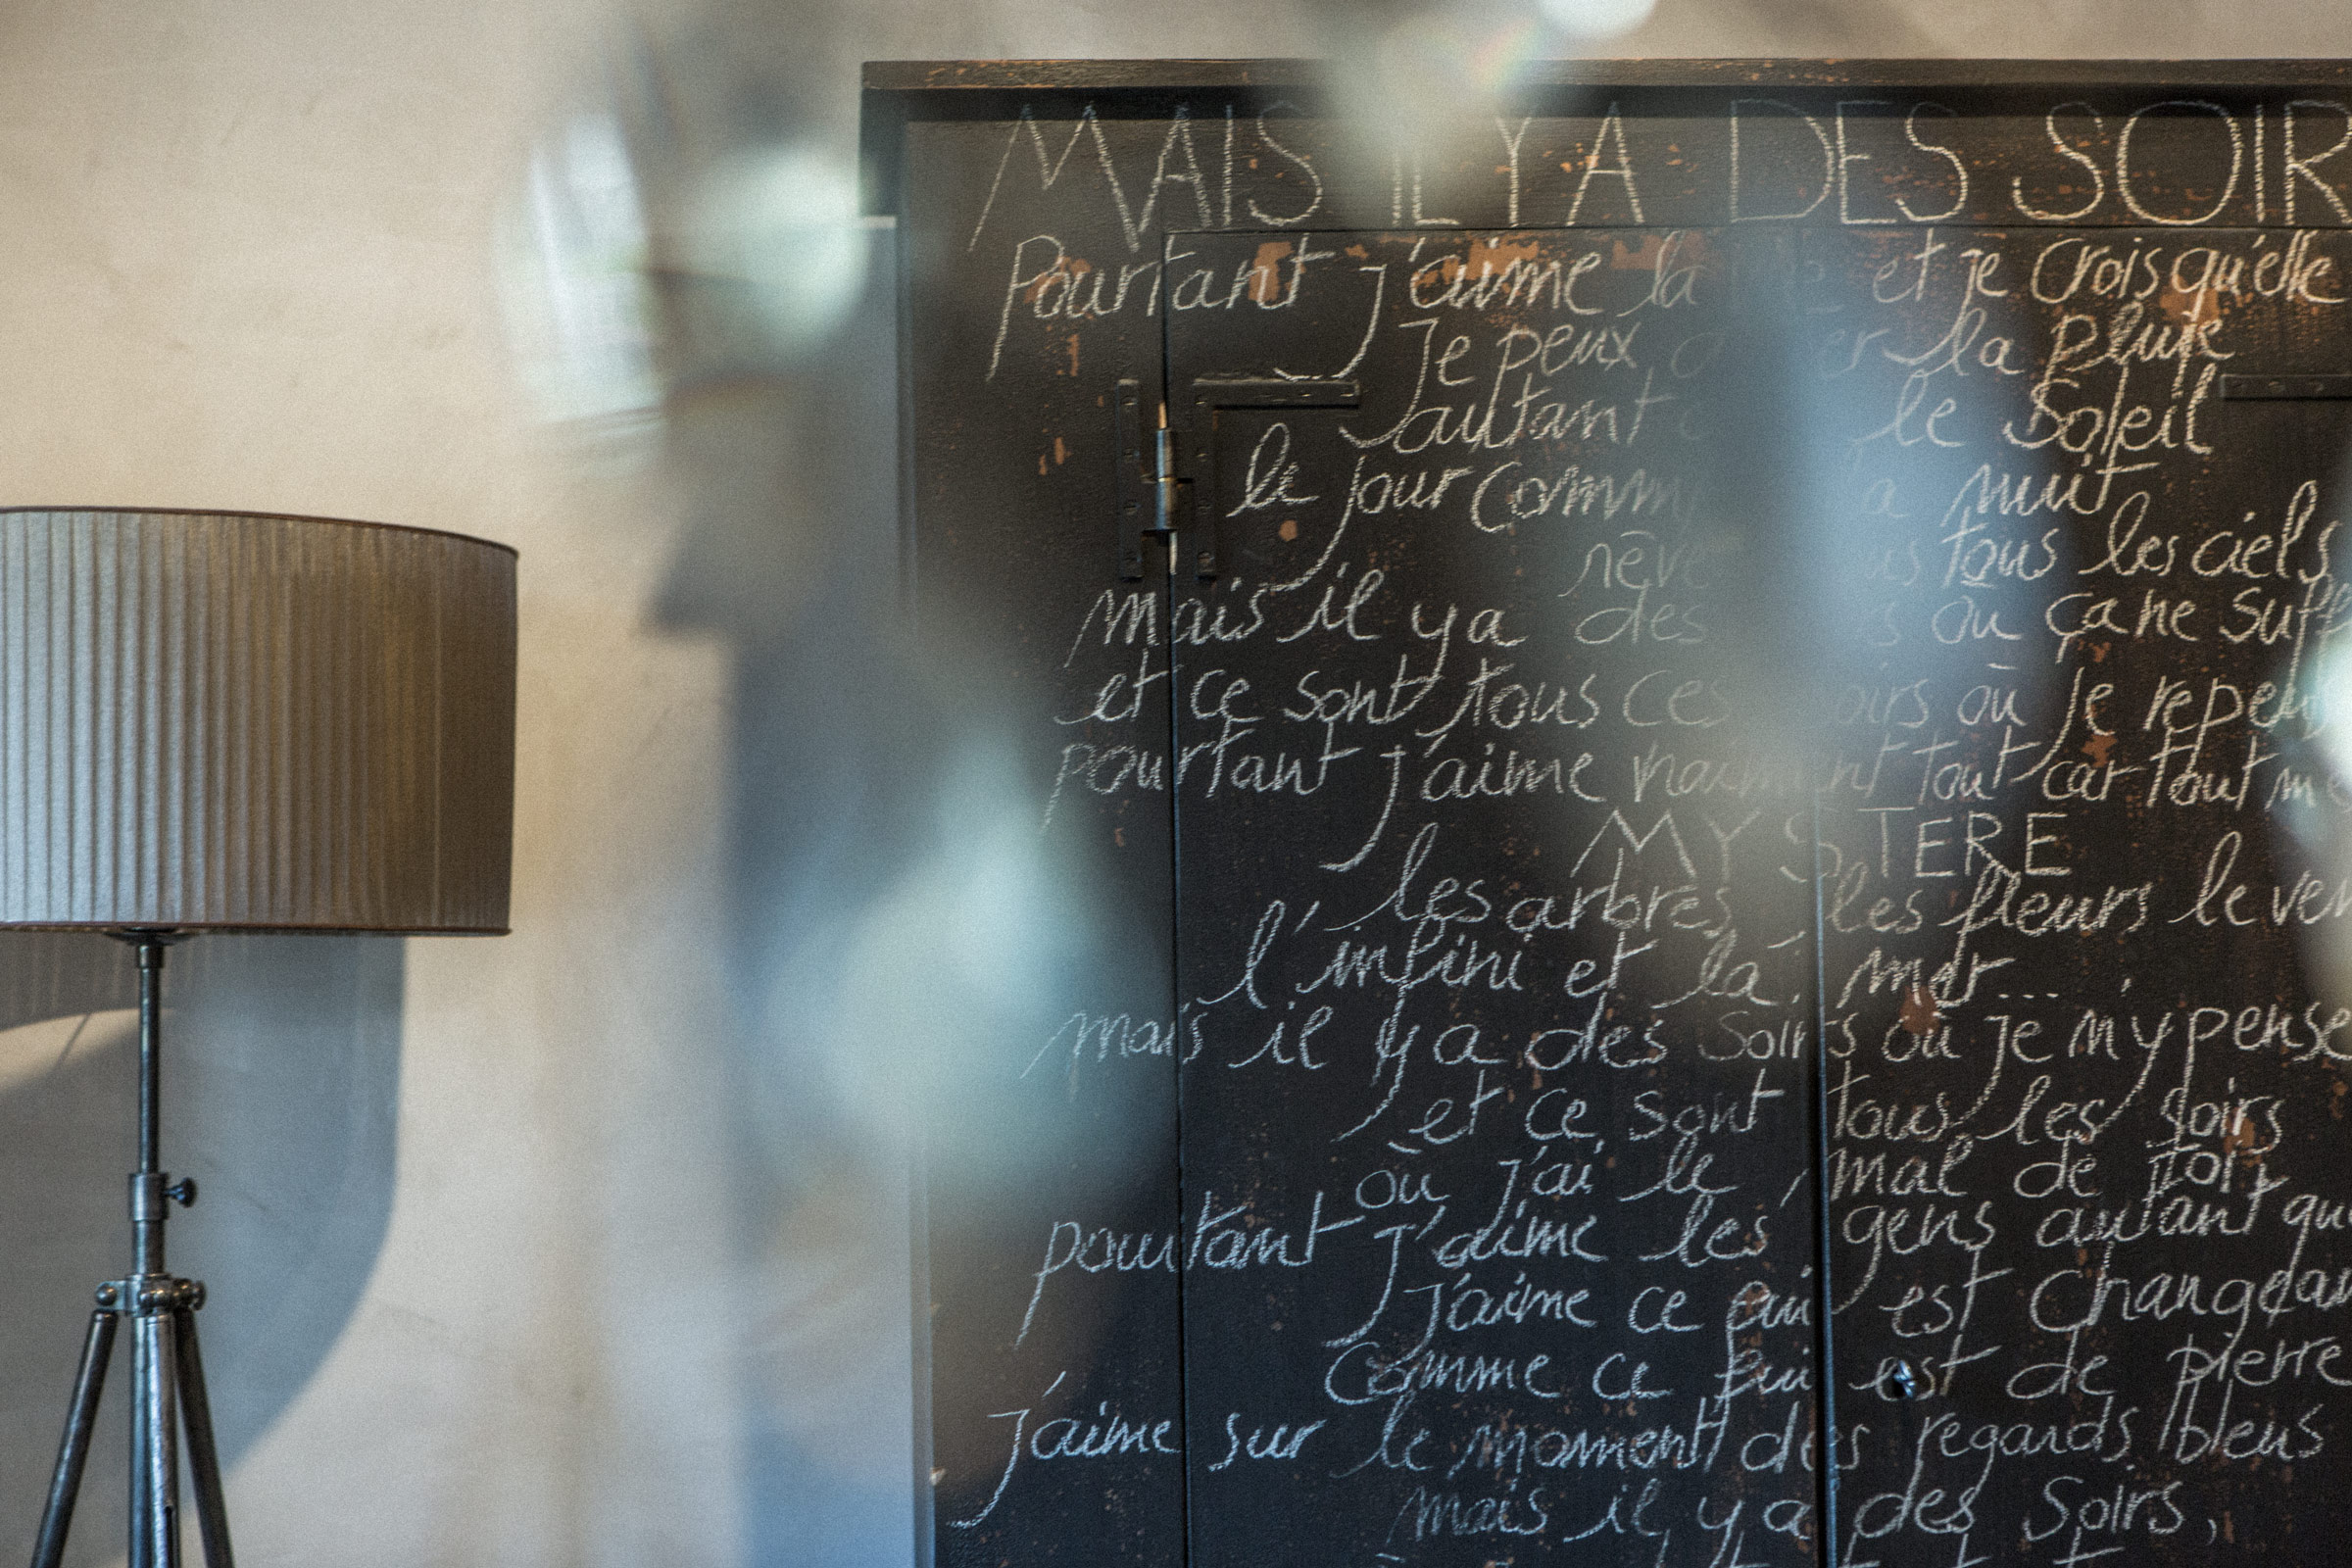 MAIS IL Y A DES SOIR
Pourtant j'aime la et je crois qu'elle
Je peux la pluie
autant le Soleil
le jour comm nuit
rêve tous les ciels
mais il y a des où ça ne suff
et ce sont tous ces soirs où je repeu
pourtant j'aime vraiment tout car tout m'e
MYSTERE
les arbres les fleurs le ven
l'infini et la mer...
mais il y a des Soirs où je m'y pense
et ce sont tous les soirs
où j'ai le mal de toi
pourtant j'aime les gens autant que
J'aime ce qui est changean
Comme ce qui est de pierre
j'aime sur le moment des regards bleus
mais il y a des Soirs,